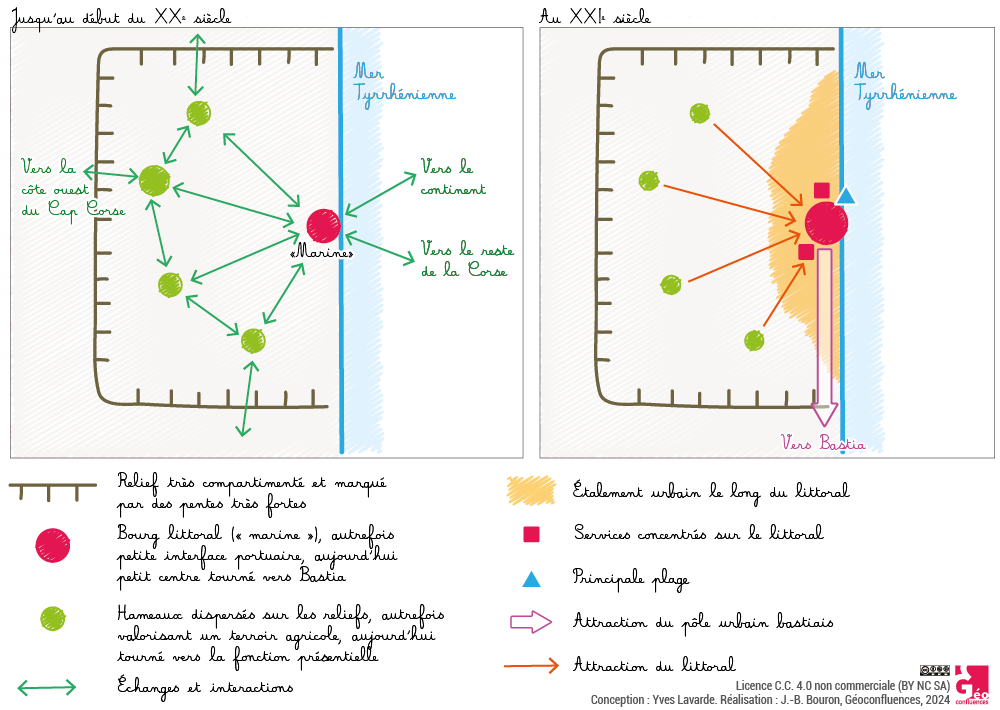 Jusqu'au début du XXe siècle
Mer
Tyrrhénienne
Vers la
côte ouest
du Cap Corse
Vers le
continent
«Marine»
Vers le reste
de la Corse
Au XXIe siècle
Mer
Tyrrhénienne
Vers Bastia
Relief très compartimenté et marqué
par des pentes très fortes
Bourg littoral (« marine »), autrefois
petite interface portuaire, aujourd'hui
petit centre tourné vers Bastia
Hameaux dispersés sur les reliefs, autrefois
valorisant un terroir agricole, aujourd'hui
tourné vers la fonction présentielle
Échanges et interactions
Étalement urbain le long du littoral
Services concentrés sur le littoral
Principale plage
Attraction du pôle urbain bastiais
Attraction du littoral
Licence C.C. 4.0 non commerciale (BY NC SA)
Conception : Yves Lavarde. Réalisation : J.-B. Bouron, Géoconfluences, 2024
Géo
confluences